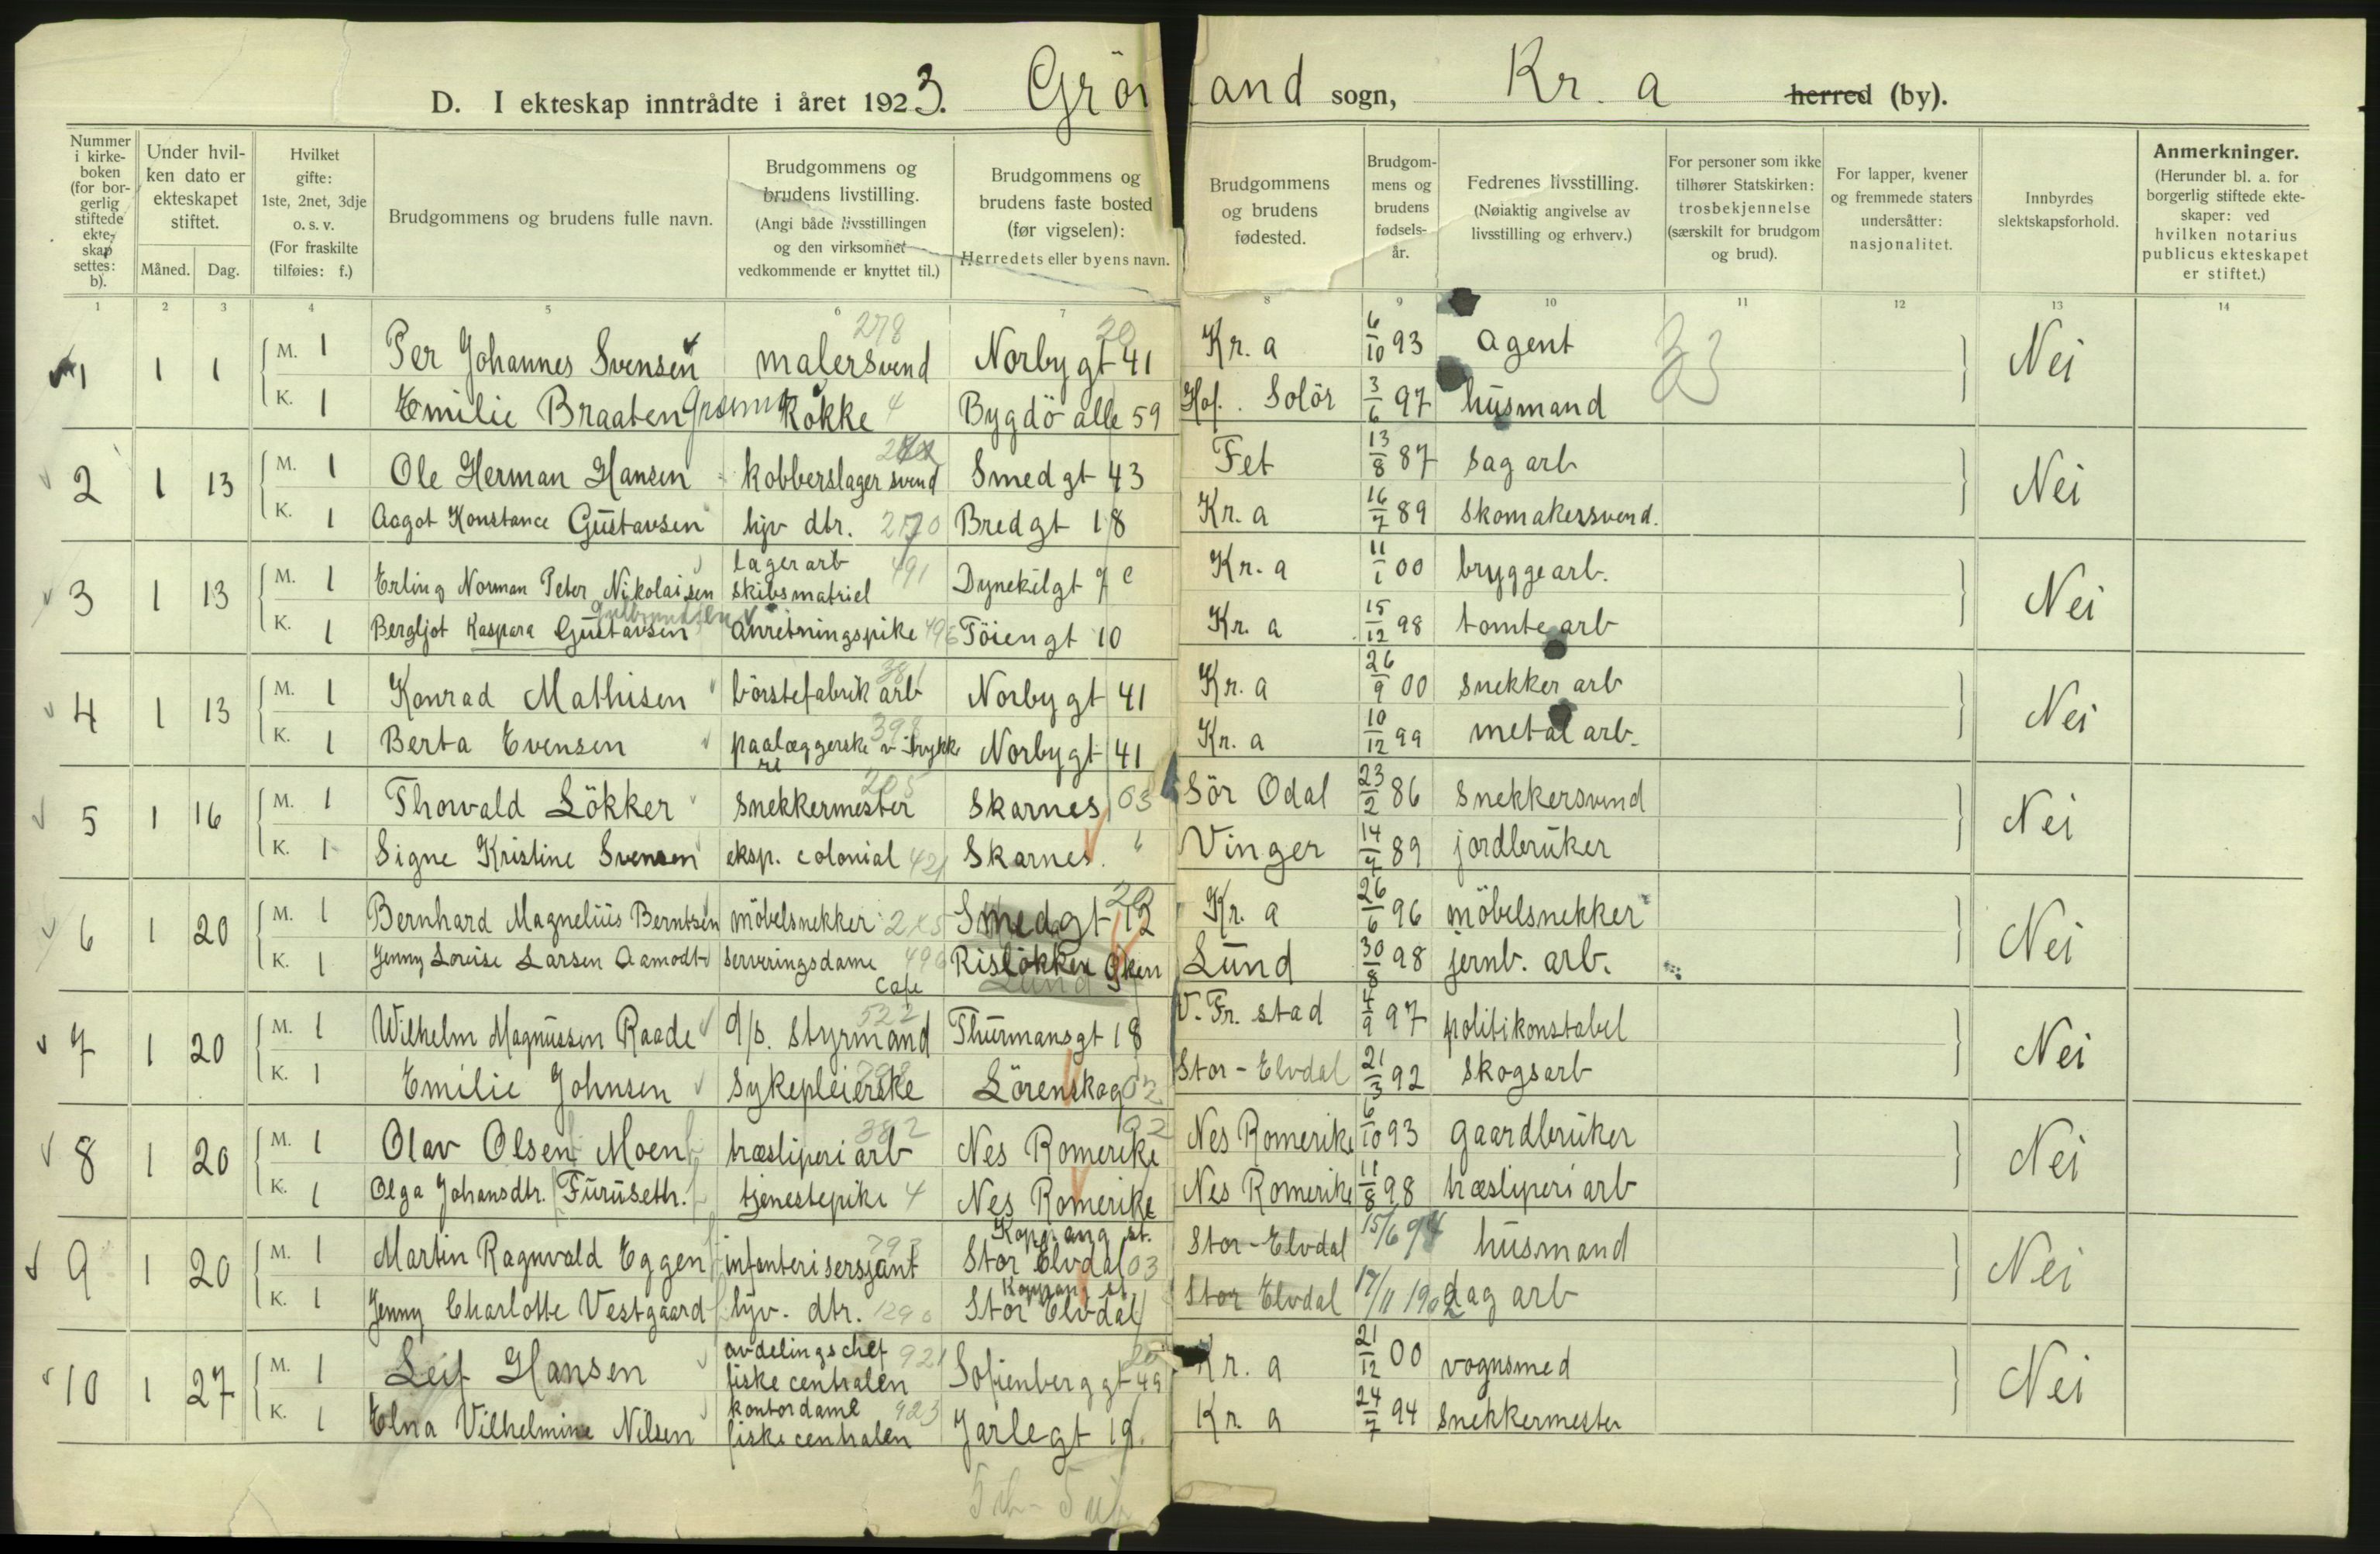 D. I ekteskap inntrådte i året 1923. Grön land sogn, Kr. a herred (by).
Nummer i kirke-boken (for bor-gerlig stiftede ekte-skap settes: b).
Under hvil-ken dato er ekteskapet stiftet.
Måned. Dag.
Hvilket gifte: 1ste, 2net, 3dje o. s. v. (For fraskilte tilføies: f.)
Brudgommens og brudens fulle navn.
Brudgommens og brudens livstilling. (Angi både livsstillingen og den virksomhet vedkommende er knyttet til.)
Brudgommens og brudens faste bosted (før vigselen): Herredets eller byens navn.
Brudgommens og brudens fødested.
Brudgom-mens og brudens fødsels-år.
Fedrenes livsstilling. (Nøiaktig angivelse av livsstilling og erhverv.)
For personer som ikke tilhører Statskirken: trosbekjennelse (særskilt for brudgom og brud).
For lapper, kvener og fremmede staters undersåtter: nasjonalitet.
Innbyrdes slektskapsforhold.
Anmerkninger. (Herunder bl. a. for borgerlig stiftede ekte-skaper: ved hvilken notarius publicus ekteskapet er stiftet.)
1 2 3 4 5 6 7 8 9 10 11 12 13 14
1 1 1 M. 1 Per Johannes Svensen malersvend 278 Norbygt 41 20 Kr. a 6/10 93 agent Nei
K. 1 Emilie Braaten Kokke 4 Bygdö alle 59 Hof. Solör 3/6 97 husmand
2 1 13 M. 1 Ole Herman Hansen kobberslager svend Smedgt 43 Fet 13/8 87 sagarb Nei
K. 1 Aagot Konstance Gustavsen hjv dtr. Bredgt 18 Kr. a 16/7 89 skomakersvend.
3 1 13 M. 1 Erling Norman Peter Nikolaisen lagerarb skibsmatriel 491 Dynekilgt 7 c Kr. a 11/1 00 bryggearb. Nei
K. 1 Bergljot Kaspara Gustavsen Gulbrandsen anretningspike 496 Töiengt 10 Kr. a 15/12 98 tomtearb
4 1 13 M. 1 Konrad Mathisen börstefabrik arb 381 Norbygt 41 Kr. a 26/9 00 snekker arb Nei
K. 1 Berta Evensen paalæggerske v trykkeri 398 Norbygt 41 Kr. a 10/12 99 metal arb.
5 1 16 M. 1 Thorvald Lökker snekkermester 205 Skarnes 03 Sör Odal 23/2 86 snekkersvend Nei
K. 1 Signe Kristine Svensen eksp. colonial 421 Skarnes. " Vinger 14/9 89 jordbruker
6 1 20 M. 1 Bernhard Magnelius Berntsen möbelsnekker Smedgt 12 20 Kr. a 26/6 96 möbelsnekker Nei
K. 1 Jenny Lovise Larsen Aamodt serveringsdame Cafe 496 Rislökken Lund 30/8 98 jernb. arb.
7 1 20 M. 1 Wilhelm Magnussen Raade d/s. styrmand 522 Thurmansgt 18 V. Fr. stad 4/9 97 politikonstabel Nei
K. 1 Emilie Johnsen Sykepleierske Lörenskog 02 Stor-Elvdal 21/3 92 skogsarb
8 1 20 M. 1 Olav Olsen Moen træsliperiarb 382 Nes Romerike 02 Nes Romerike 6/10 93 gaardbruker Nei
K. 1 Olga Johansdtr. Furuseth. tjenestepike 4 Nes Romerike Nes Romerike 11/8 98 træsliperiarb
9 1 20 M. 1 Martin Ragnvald Eggen infanterisersjant Koppang st. Stor Elvdal 03 Stor-Elvdal 15/6 94 husmand Nei
K. 1 Jenny Charlotte Vestgaard hjv. dtr. Koppang st. Stor Elvdal Stor Elvdal 17/11 1902 dagarb
10 1 27 M. 1 Leif Hansen avdelingschef fiskecentralen 921 Sofienberggt 49 20 Kr. a 21/12 00 vognsmed Nei
K. 1 Elna Vilhelmine Nilsen kontordame fiskecentralen 923 Jarlegt 19. Kr. a 24/7 94 snekkermester